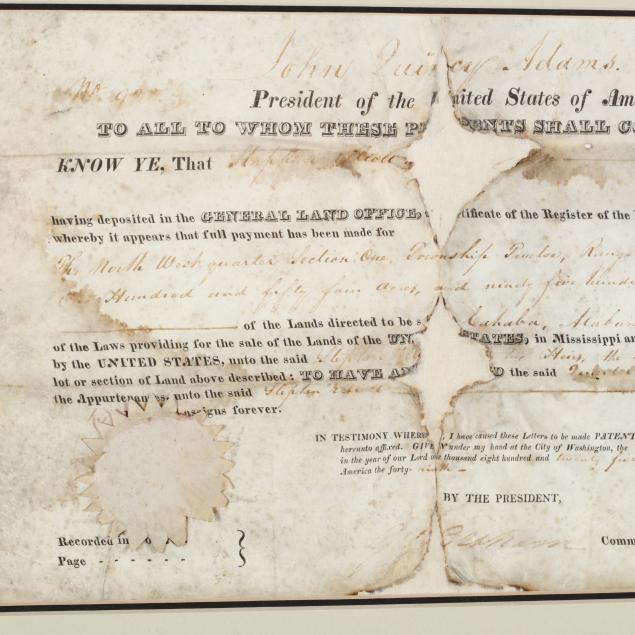 John Quincy Adams.
President of the United States of Am
TO ALL TO WHOM THESE P ENTS SHALL CO
KNOW YE, That Stephen
having deposited in the GENERAL LAND OFFICE, tificate of the Register of the
whereby it appears that full payment has been made for
The North West quarter Section One, Township Twelve, Range
Hundred and fifty four acres, and ninety five hund
of the Lands directed to be s Cahaba, Alabam
of the Laws providing for the sale of the Lands of the UN STATES, in Mississippi an
by the UNITED STATES, unto the said Stephen Heirs, the
lot or section of Land above described: TO HAVE AN D the said
the Appurtenances, unto the said Stephen
assigns forever.
IN TESTIMONY WHERE , I have caused these Letters to be made PATENT
hereunto affixed. GIVEN under my hand at the City of Washington, the
in the year of our Lord one thousand eight hundred and twenty five
America the forty-ninth
BY THE PRESIDENT,
Comm
Recorded in
Page - - - - - - }